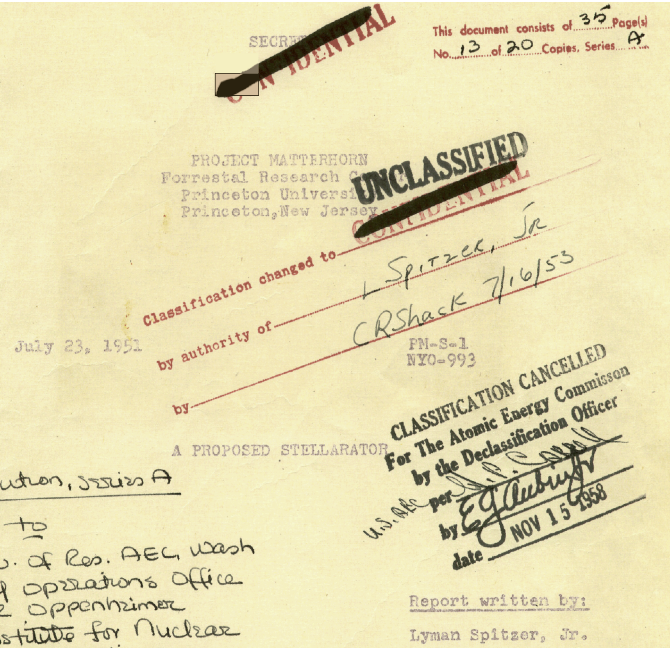 SECRET
CONFIDENTIAL
This document consists of 35 Page(s)
No. 13 of 20 Copies, Series A
PROJECT MATTERHORN
Forrestal Research
Princeton Universi
Princeton, New Jersey
UNCLASSIFIED
CONFIDENTIAL
Classification changed to
L Spitzer, Jr
by authority of
CRShack 7/16/53
by
July 23, 1951
PM-S-1
NYO-993
A PROPOSED STELLARATOR
CLASSIFICATION CANCELLED
For The Atomic Energy Commisson
by the Declassification Officer
U.S. AEC
per
by
date NOV 15 1958
ution, series A
to
. of Res. AEC, Wash
operations office
oppenheimer
stitute for Nuclear
Report written by:
Lyman Spitzer, Jr.